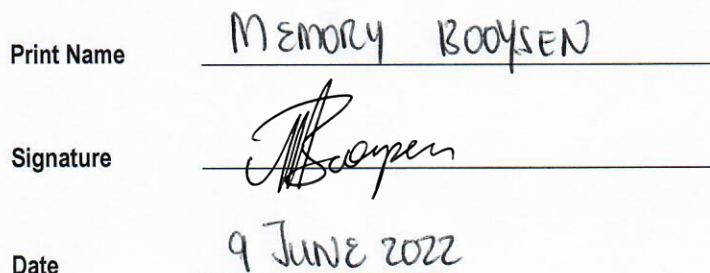 Print Name MEMORY BOOYSEN
Signature MBooysen
Date 9 JUNE 2022